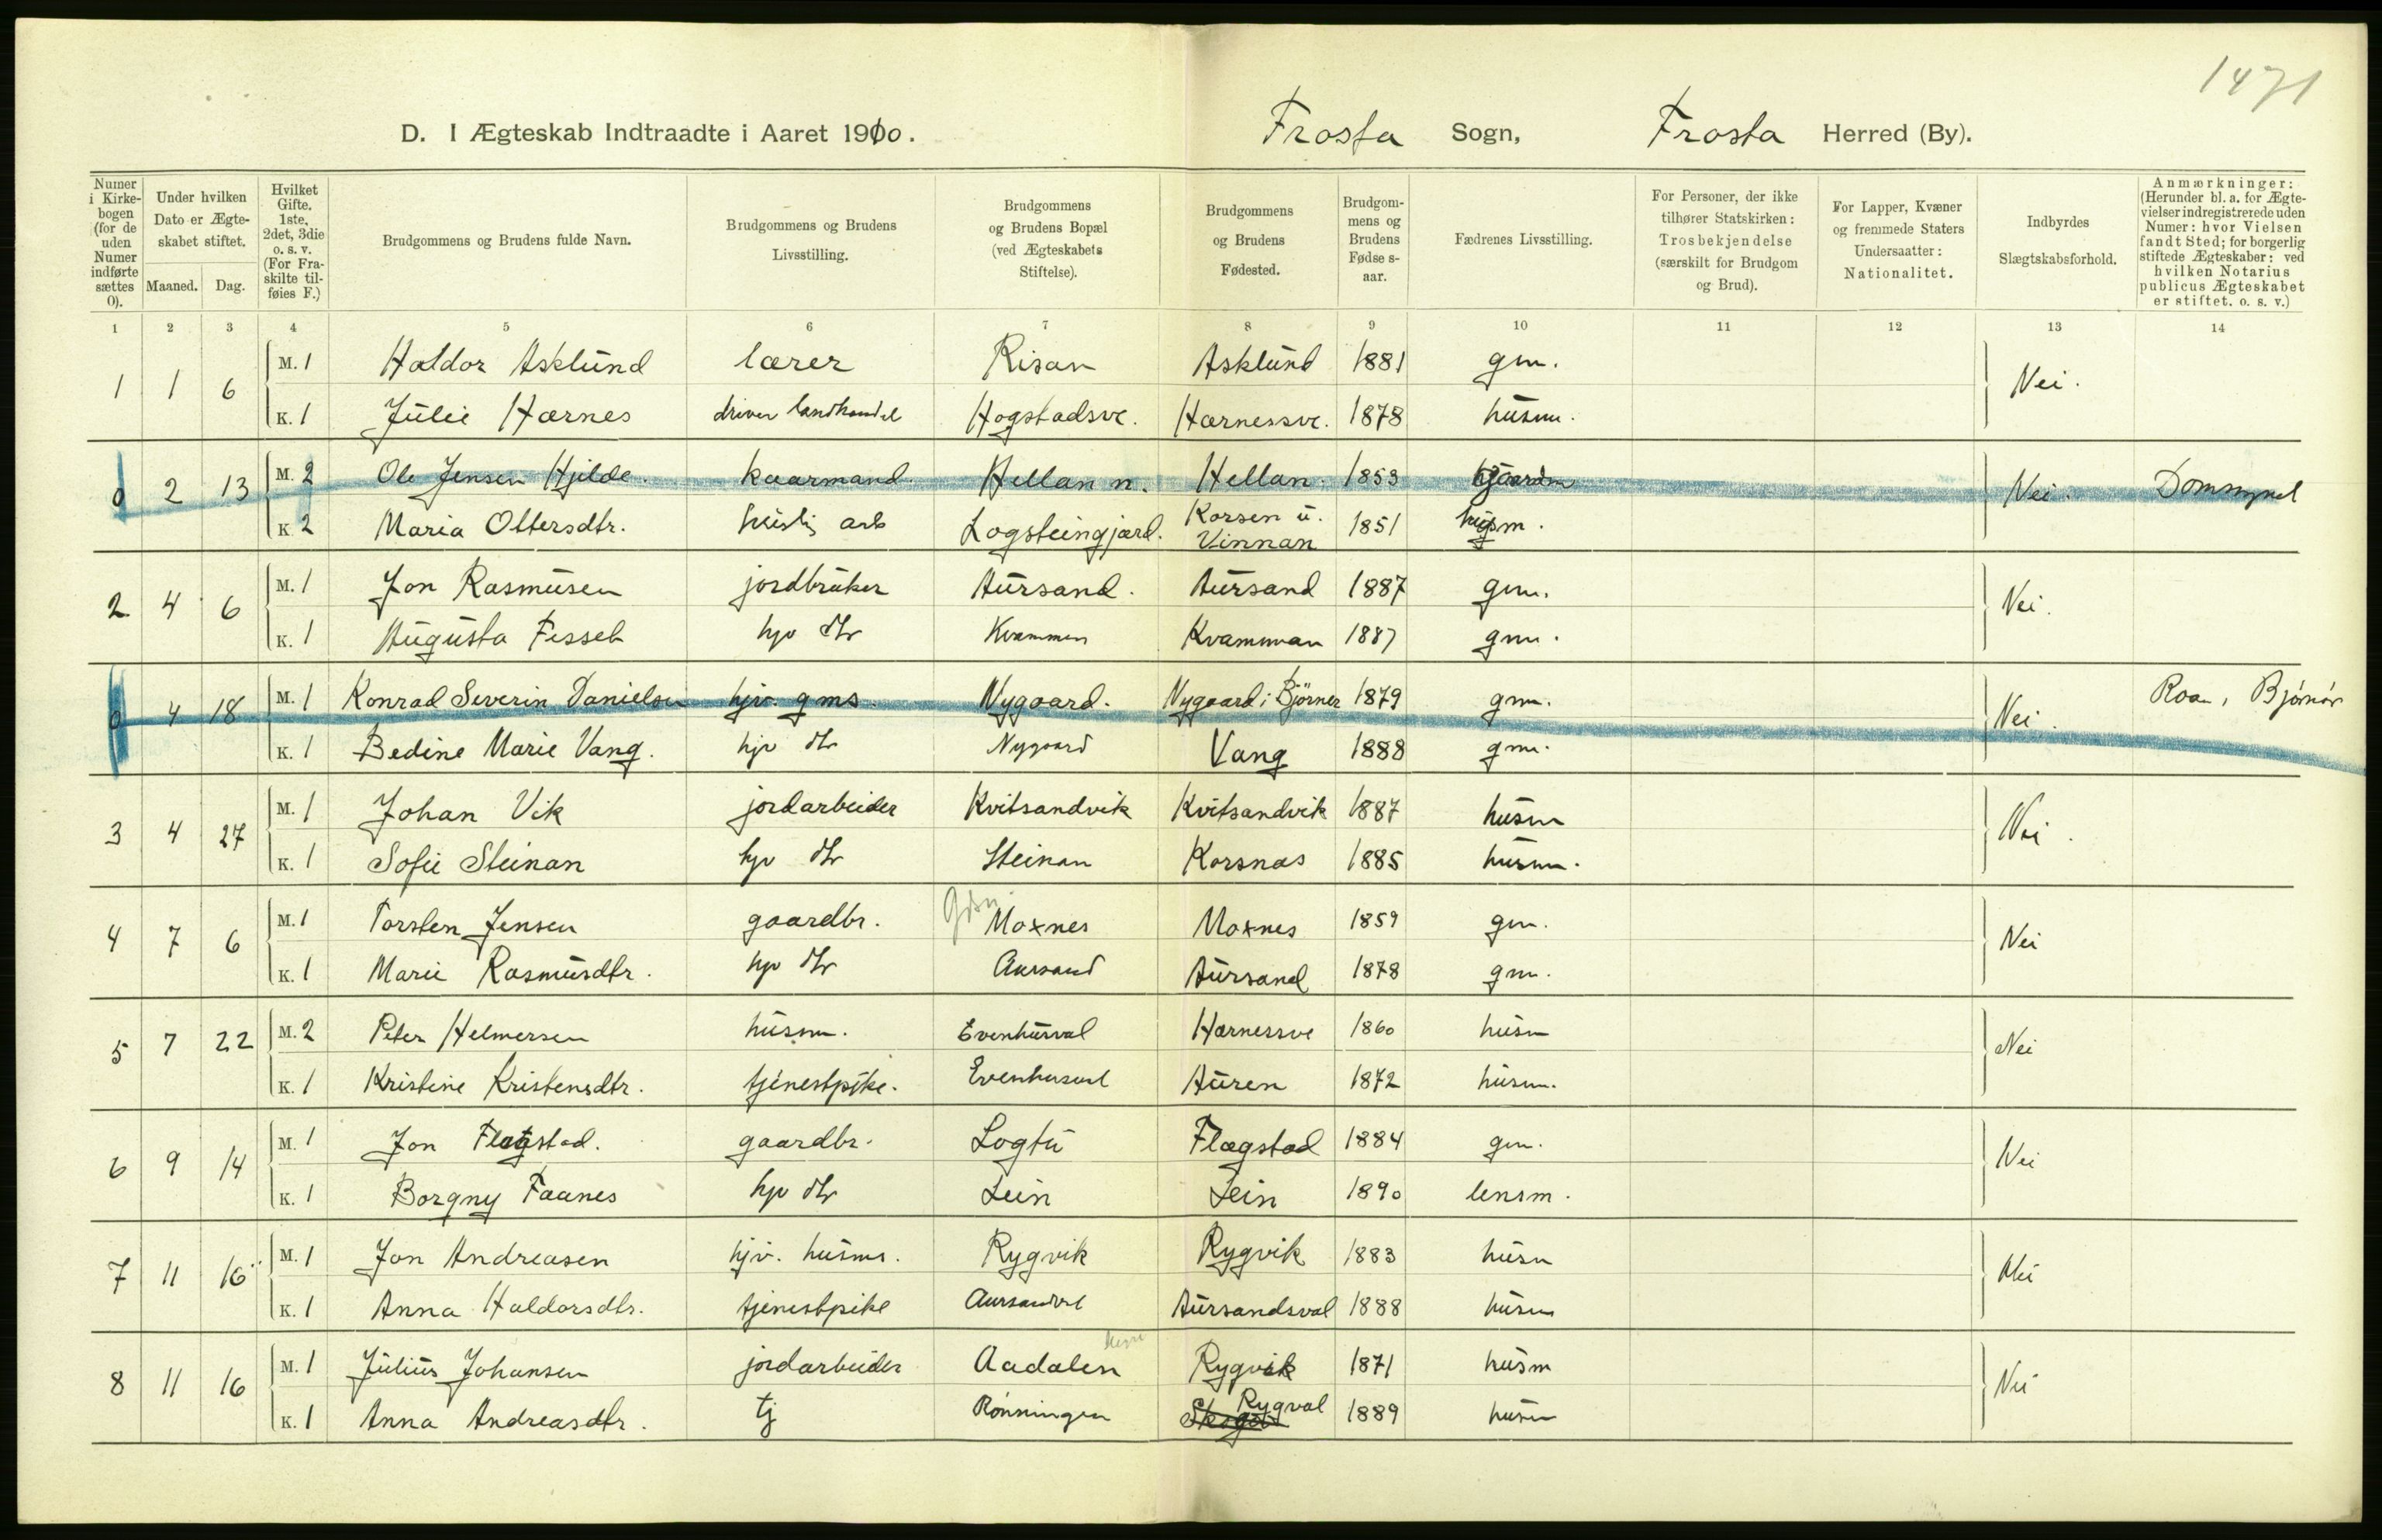 1471
D. I Ægteskab Indtraadte i Aaret 1910. Frosta Sogn, Frosta Herred (By).
Numer i Kirkebogen (for de uden Numer indførte sættes 0).
Under hvilken Dato er Ægteskabet stiftet.
Maaned. Dag.
Hvilket Gifte. 1ste, 2det, 3die o. s. v. (For Fraskilte tilføies F.)
Brudgommens og Brudens fulde Navn.
Brudgommens og Brudens Livsstilling.
Brudgommens og Brudens Bopæl (ved Ægteskabets Stiftelse).
Brudgommens og Brudens Fødested.
Brudgommens og Brudens Fødselsaar.
Fædrenes Livsstilling.
For Personer, der ikke tilhører Statskirken: Trosbekjendelse (særskilt for Brudgom og Brud).
For Lapper, Kvæner og fremmede Staters Undersaatter: Nationalitet.
Indbyrdes Slægtskabsforhold.
Anmærkninger: (Herunder bl. a. for Ægtevielser indregistrerede uden Numer: hvor Vielsen fandt Sted; for borgerlig stiftede Ægteskaber: ved hvilken Notarius publicus Ægteskabet er stiftet. o. s. v.)
1 2 3 4 5 6 7 8 9 10 11 12 13 14
1 1 6 M. 1 Haldor Asklund lærer Risan Asklund 1881 gm. Nei.
K. 1 Julie Hærnes driver landhandel Hogstadsve. Hærnessve. 1878 husm.
0 2 13 M. 2 Ole Jensen Hjelde. kaarmand. Hellan n. Hellan. 1853 gaardm Nei. Domsognet
K 2 Maria Ottersdtr. huslig arb Logsteingjærd. Korsen u. Vinnan 1851 husm.
2 4 6 M. 1 Jon Rasmusen jordbruker Aursand. Aursand 1887 gm. Nei.
K. 1 Augusta Fisseb hjv dtr Kvammen Kvamman 1887 gm.
0 4 18 M. 1 Konrad Severin Danielsen hjv. gms. Nygaard. Nygaard i Bjørnør 1879 gm. Nei. Roan, Bjørnør
K. 1 Bedine Marie Vang. hjv dtr Nygaard Vang 1888 gm.
3 4 27 M. 1 Johan Vik jordarbeider Kvitsandvik Kvitsandvik 1887 husm Nei.
K. 1 Sofie Steinan hjv dtr Steinan Korsnæs 1885 husm.
4 7 6 M. 1 Torsten Jensen gaardbr. Moxnes Moxnes 1859 gm. Nei
K. 1 Marie Rasmusdtr. hjv dtr Aursand Aursand 1878 gm.
5 7 22 M. 2 Peter Helmersen husm. Evenhusval Hærnessve 1860 husm Nei
K. 1 Kristine Kristensdtr. tjenestpike. Evenhusval Auren 1872 husm.
6 9 14 M. 1 Jon Flagstad. gaardbr. Logtu Flagstad 1884 gm. Nei
K. 1 Borgny Faanes hjv dtr Lein Lein 1890 lensm.
7 11 16 M. 1 Jon Andreasen hjv. husms. Rygvik Rygvik 1883 husm Nei
K. 1 Anna Haldorsdtr. tjenestpike Aursandval Aursandsval 1888 husm
8 11 16 M. 1 Julius Johansen jordarbeider Aadalen Rygvik 1871 husm Nei
K. 1 Anna Andreasdtr. tj Rønningen Rygval 1889 husm